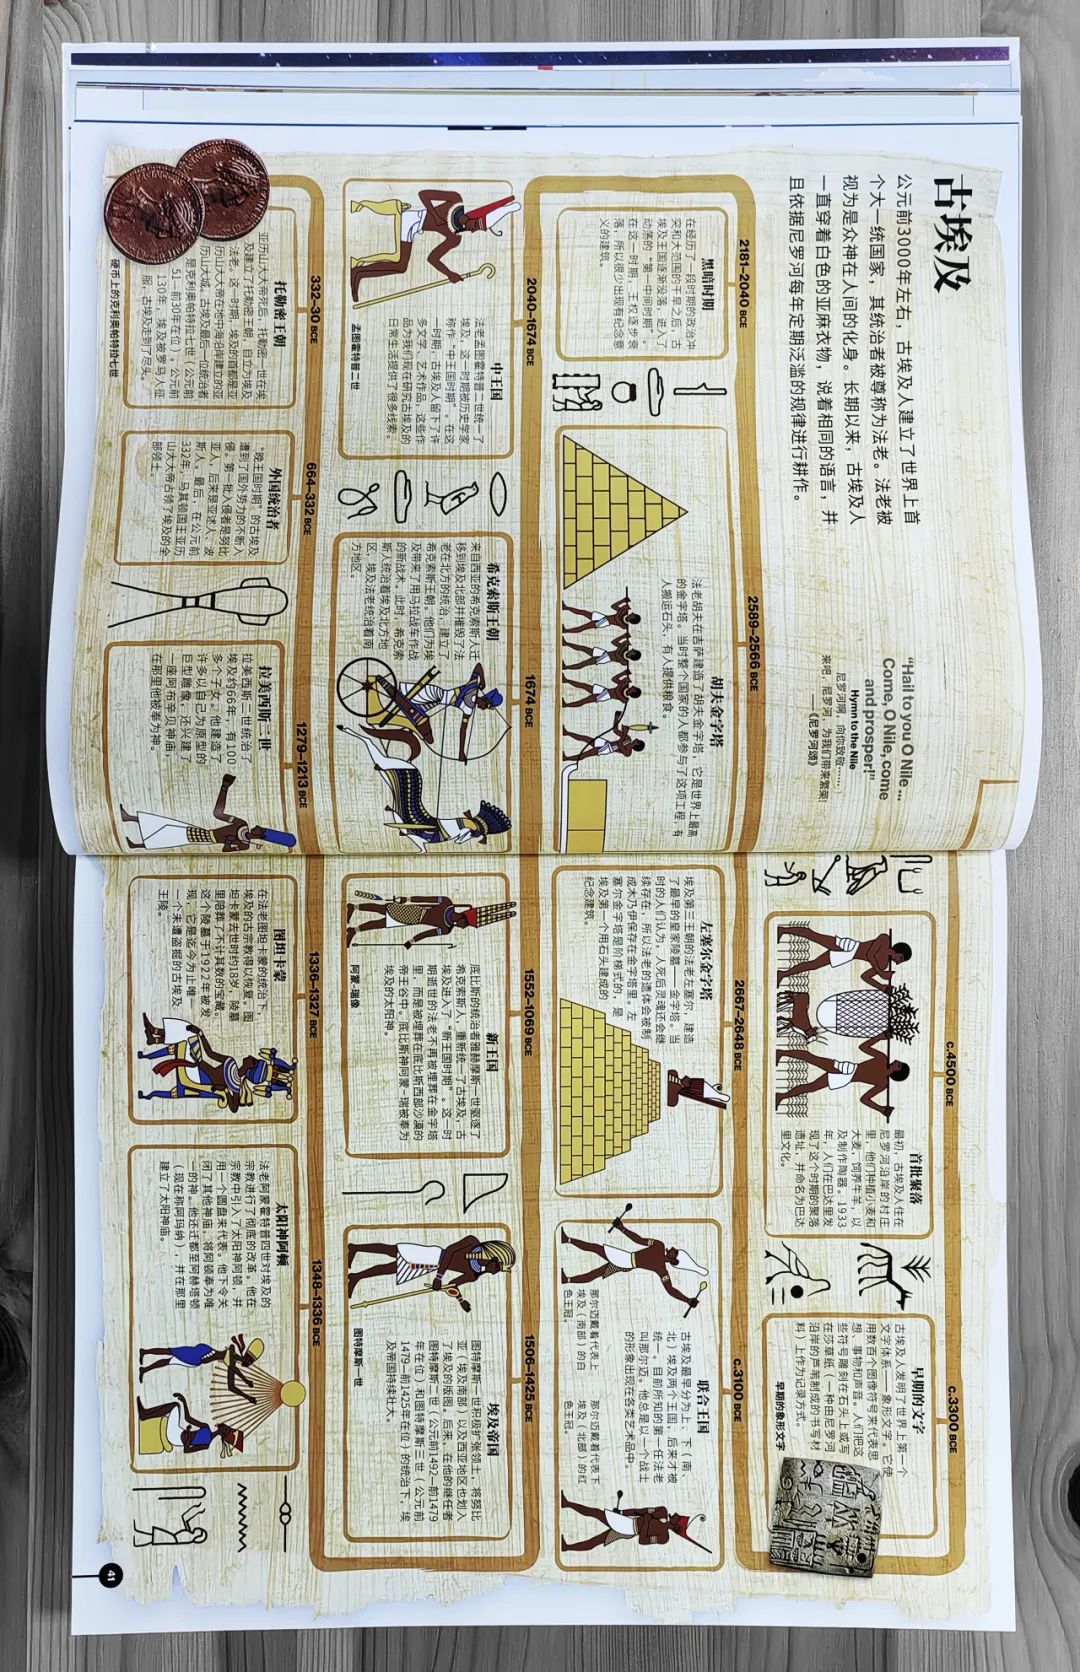 古埃及
公元前3000年左右，古埃及人建立了世界上首
个大一统国家，其统治者被尊称为法老。法老被
视为是众神在人间的化身。长期以来，古埃及人
一直穿着白色的亚麻衣物，说着相同的语言，并
且依据尼罗河每年定期泛滥的规律进行耕作。
“Hail to you O Nile ...
Come, O Nile, come
and prosper!”
Hymn to the Nile
尼罗河啊，向你致敬……
来吧，尼罗河，为我们带来繁荣！
——《尼罗河颂》
c.4500 BCE
首批聚落
最初，古埃及人住在
尼罗河沿岸的村庄
里，他们种植小麦和
大麦，饲养牛羊，以
及制作陶器。1933
年，人们在巴达里发
现了这个时期的聚落
遗址，并命名为巴达
里文化。
c.3300 BCE
早期的文字
古埃及人发明了世界上第一个
文字体系——象形文字。它使
用数百个图像符号来代表思
想、事物和声音。人们把这
些符号雕刻在石头上或写
在莎草纸（一种由尼罗河
沿岸的芦苇制成的书写材
料）上作为记录方式。
早期的象形文字
2181–2040 BCE
黑暗时期
在经历了一段时期的政治冲
突和大范围的干旱之后，古
埃及王国逐渐没落，进入了
动荡的“第一中间时期”。
在这一时期，王权逐步衰
落，所以很少出现有纪念意
义的建筑。
2589–2566 BCE
胡夫金字塔
法老胡夫在吉萨建造了胡夫金字塔，它是世界上最高
的金字塔。当时整个国家的人都参与了这项工程，有
人搬运石头，有人提供粮食。
2667–2648 BCE
左塞尔金字塔
埃及第三王朝的法老左塞尔，建造
了最早的皇家陵墓——金字塔。当
时的人们认为，人死后灵魂还会继
续存在，所以法老的遗体会被制
成木乃伊保存在金字塔里。左
塞尔金字塔是阶梯式的，是
埃及第一个用石头建成的
纪念建筑。
c.3100 BCE
联合王国
古埃及最早分为上、下（南、
北）埃及两个王国，后来才被
统一。目前所知的第一任法老
叫那尔迈。他总是以一个战士
的形象出现在各类艺术品中。
那尔迈戴着代表上
埃及（南部）的白
色王冠。
那尔迈戴着代表下
埃及（北部）的红
色王冠。
2040–1674 BCE
中王国
法老孟图霍特普二世统一了
埃及，这一时期被历史学家
称作“中王国时期”。在这
一时期，古埃及人留下了许
多文学、艺术作品，这些作
品为我们现在研究古埃及的
日常生活提供了很多线索。
孟图霍特普二世
1674 BCE
希克索斯王朝
来自西亚的希克索斯人迁
移到埃及北部并摧毁了法
老在北方的统治，建立了
希克索斯王朝。他们为埃
及带来了用马拉战车作战
的新战术。此时，希克索
斯人统治着埃及北方地
区，埃及法老统治着南
方地区。
1552–1069 BCE
新王国
底比斯的统治者雅赫摩斯一世驱逐了
希克索斯人，重新统一了古埃及，古
埃及进入了“新王国时期”。这一时
期逝世的法老不再被埋葬在金字塔
里，而是被埋葬在底比斯西部沙漠的
帝王谷中。底比斯神阿蒙-瑞被奉为
埃及的太阳神。
阿蒙-瑞像
1506–1425 BCE
埃及帝国
图特摩斯一世积极扩张领土，将努比
亚（埃及南部）以及西亚地区也划入
了埃及的版图。后来，在他的继任者
图特摩斯二世（公元前1492—前1479
年在位）和图特摩斯三世（公元前
1479—前1425年在位）的统治下，埃
及帝国持续壮大。
图特摩斯一世
332–30 BCE
托勒密王朝
亚历山大大帝死后，托勒密一世在埃
及建立了托勒密王朝，自立为埃及
法老。这一时期，埃及的首都是亚
历山大大帝在地中海沿岸建立的亚
历山大城。古埃及最后一位统治者
是克利奥帕特拉七世（公元前
51—前30年在位）。公元前
30年，埃及被罗马人征
服，古埃及走到了尽头。
硬币上的克利奥帕特拉七世
664–332 BCE
外国统治者
“晚王国时期”的古埃及
遭到了国外势力的不断入
侵。第一批入侵者是努比
亚人，后来是亚述人、波
斯人。最后，在公元前
332年，马其顿国王亚历
山大大帝占领了埃及的全
部领土。
1279–1213 BCE
拉美西斯二世
拉美西斯二世统治了
埃及约66年，有100
多个子女。他建造了
许多以自己为原型的
巨型雕像，还兴建了
一座阿布辛贝神庙，
在那里他被奉为神。
1336–1327 BCE
图坦卡蒙
在法老图坦卡蒙的统治下，
埃及的古宗教得以恢复。图
坦卡蒙去世时约18岁，陵墓
里陪葬了不计其数的宝藏。
这个陵墓于1922年被发
现，它是迄今为止唯
一一个未遭盗掘的古埃及
王陵。
1348–1336 BCE
太阳神阿顿
法老阿蒙霍特普四世对埃及的
宗教进行了彻底的改革。他在
宗教中引入了太阳神阿顿，并
用一个圆盘来代表。他下令关
闭了其他神庙，将阿顿奉为唯
一的神。他还迁都至阿赫塔顿
（现在称阿玛纳），并在那里
建立了太阳神庙。
41